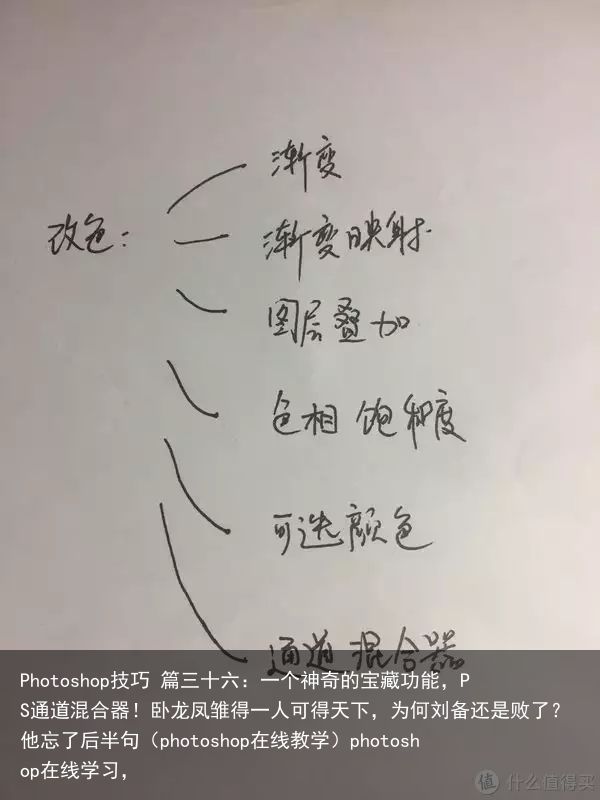 渐变
改色:
渐变映射
图层叠加
色相 饱和度
可选颜色
通道混合器
Photoshop技巧 篇三十六：一个神奇的宝藏功能，P
S通道混合器！卧龙凤雏得一人可得天下，为何刘备还是败了？
他忘了后半句（photoshop在线教学）photosh
op在线学习，
值 什么值得买